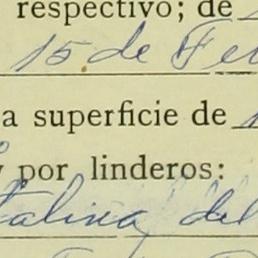 respectivo; de
15 de Fe
a superficie de
y por linderos:
talina del